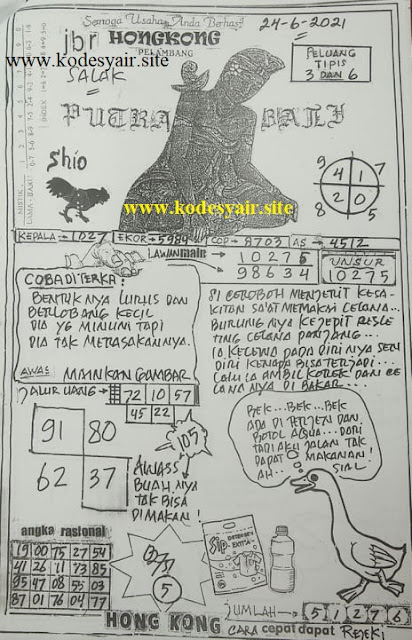 Semoga Usaha Anda Berhasil
24-6-2021
jbr HONGKONG
PELAMBANG
www.kodesyair.site
SALAK
PELUANG
TIPIS
3 DAN 6
PUTRA BALI
shio
9 4 1 7
8 2 0 5
www.kodesyair.site
KEPALA→1027 EKOR→5984 COP→8703 AS→4512
LAWAN main
10275
98634
UNSUR
10275
COBA DITERKA:
BENTUKNYA LURUS DAN
BERLOBANG KECIL
DIA YG MINUM TAPI
DIA TAK MERASAKANNYA.
AWAS MAINKAN GAMBAR
SI CEROBOH MENJERIT KESA-
KITAN SA'AT MEMAKAI CELANA...
BURUNG NYA KEJEPIT RESLE
TING CELANA PANJANG...
IA KECEWA PADA DIRI NYA SEN
DIRI KENAPA BISA TERJADI...
LALU IA AMBIL KOREK DAN CE
LANA NYA DI BAKAR...
JALUR UANG→
72 10 57
45 22
91 80
62 37
105
AWASS
BUAH NYA
TAK BISA
DIMAKAN!
BEK...BEK...BEK
ADA DITERJEN DAN
BOTOL AQUA...DARI
TADI AKU JALAN TAK
DAPAT MAKANAN!
AH.. SIAL
angka rasional
19 00 75 27 54
41 26 11 73 85
95 47 08 55 03
87 01 76 04 77
5
HONG KONG
JUMLAH→ 5 1 2 7 6
CARA cepat dapat REJEKI